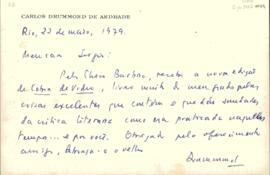 CARLOS DRUMMOND DE ANDRADE
Rio, 22 de maio, 1979.
Meu caro Sergio:
Pela Chico Barbosa, recebi a nova edição
de Cobra de Vidro, livro muito de meu agrado pelas
coisas excelentes que contém e que dão saudades
da crítica literária como era praticada naquele
tempo... e por você. Obrigado pelo oferecimento
amigo. Abraça-o o velho
Drummond